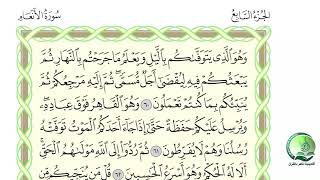 الجزء السابع
سورة الأنعام
وَهُوَ ٱلَّذِي يَتَوَفَّىٰكُم بِٱلَّيۡلِ وَيَعۡلَمُ مَا جَرَحۡتُم بِٱلنَّهَارِ ثُمَّ
يَبۡعَثُكُمۡ فِيهِ لِيُقۡضَىٰٓ أَجَلٞ مُّسَمّٗىۖ ثُمَّ إِلَيۡهِ مَرۡجِعُكُمۡ ثُمَّ
يُنَبِّئُكُم بِمَا كُنتُمۡ تَعۡمَلُونَ ٦٠ وَهُوَ ٱلۡقَاهِرُ فَوۡقَ عِبَادِهِۦۖ
وَيُرۡسِلُ عَلَيۡكُمۡ حَفَظَةً حَتَّىٰٓ إِذَا جَآءَ أَحَدَكُمُ ٱلۡمَوۡتُ تَوَفَّتۡهُ
رُسُلُنَا وَهُمۡ لَا يُفَرِّطُونَ ٦١ ثُمَّ رُدُّوٓاْ إِلَى ٱللَّهِ مَوۡلَىٰهُمُ ٱلۡحَقِّۚ
أَلَا لَهُ ٱلۡحُكۡمُ وَهُوَ أَسۡرَعُ ٱلۡحَٰسِبِينَ ٦٢ قُلۡ مَن يُنَجِّيكُم مِّن